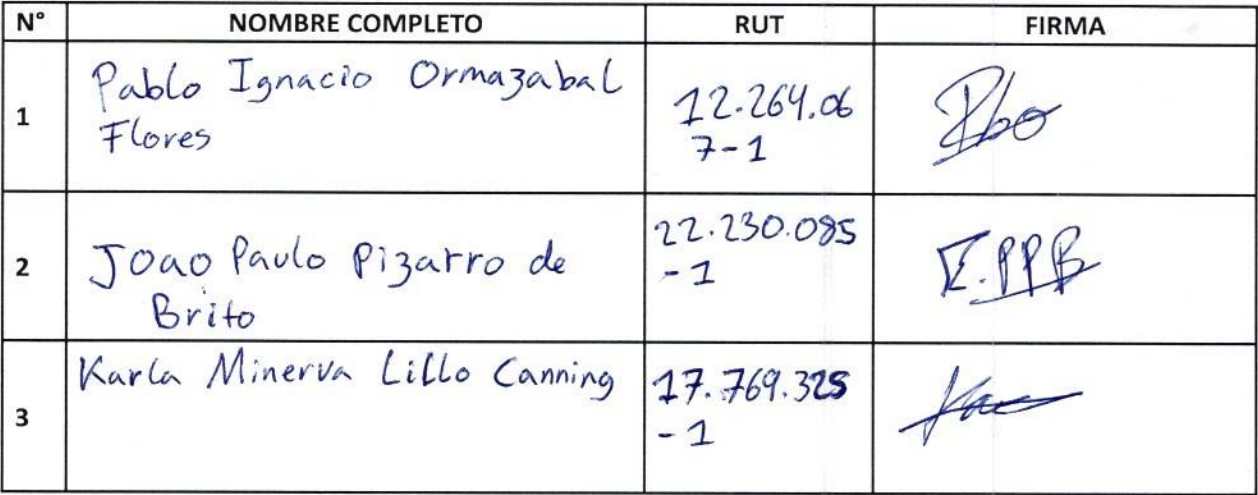 N° NOMBRE COMPLETO RUT FIRMA
1 Pablo Ignacio Ormazabal 12.264.06
Flores 7-1
2 Joao Paulo Pizarro de 22.230.085
Brito -1
3 Karla Minerva Lillo Canning 17.769.325
-1